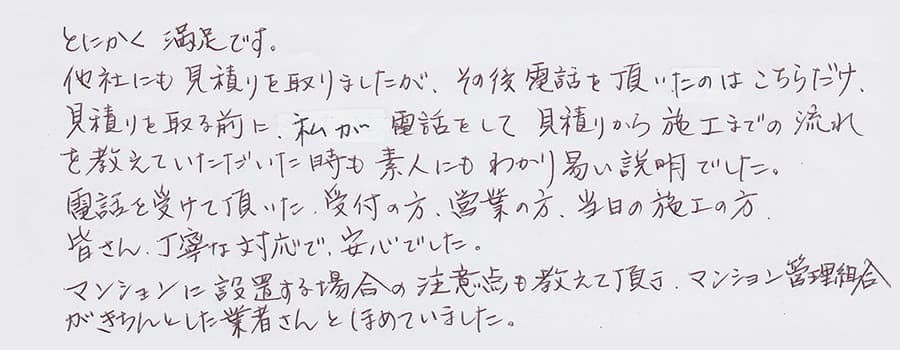 とにかく満足です。
他社にも見積りを取りましたが、その後電話を頂いたのはこちらだけ、
見積りを取る前に、私が電話をして見積りから施工までの流れ
を教えていただいた時も素人にもわかり易い説明でした。
電話を受けて頂いた、受付の方、営業の方、当日の施工の方、
皆さん、丁寧な対応で、安心でした。
マンションに設置する場合の注意点も教えて頂き、マンション管理組合
がきちんとした業者さんとほめていました。